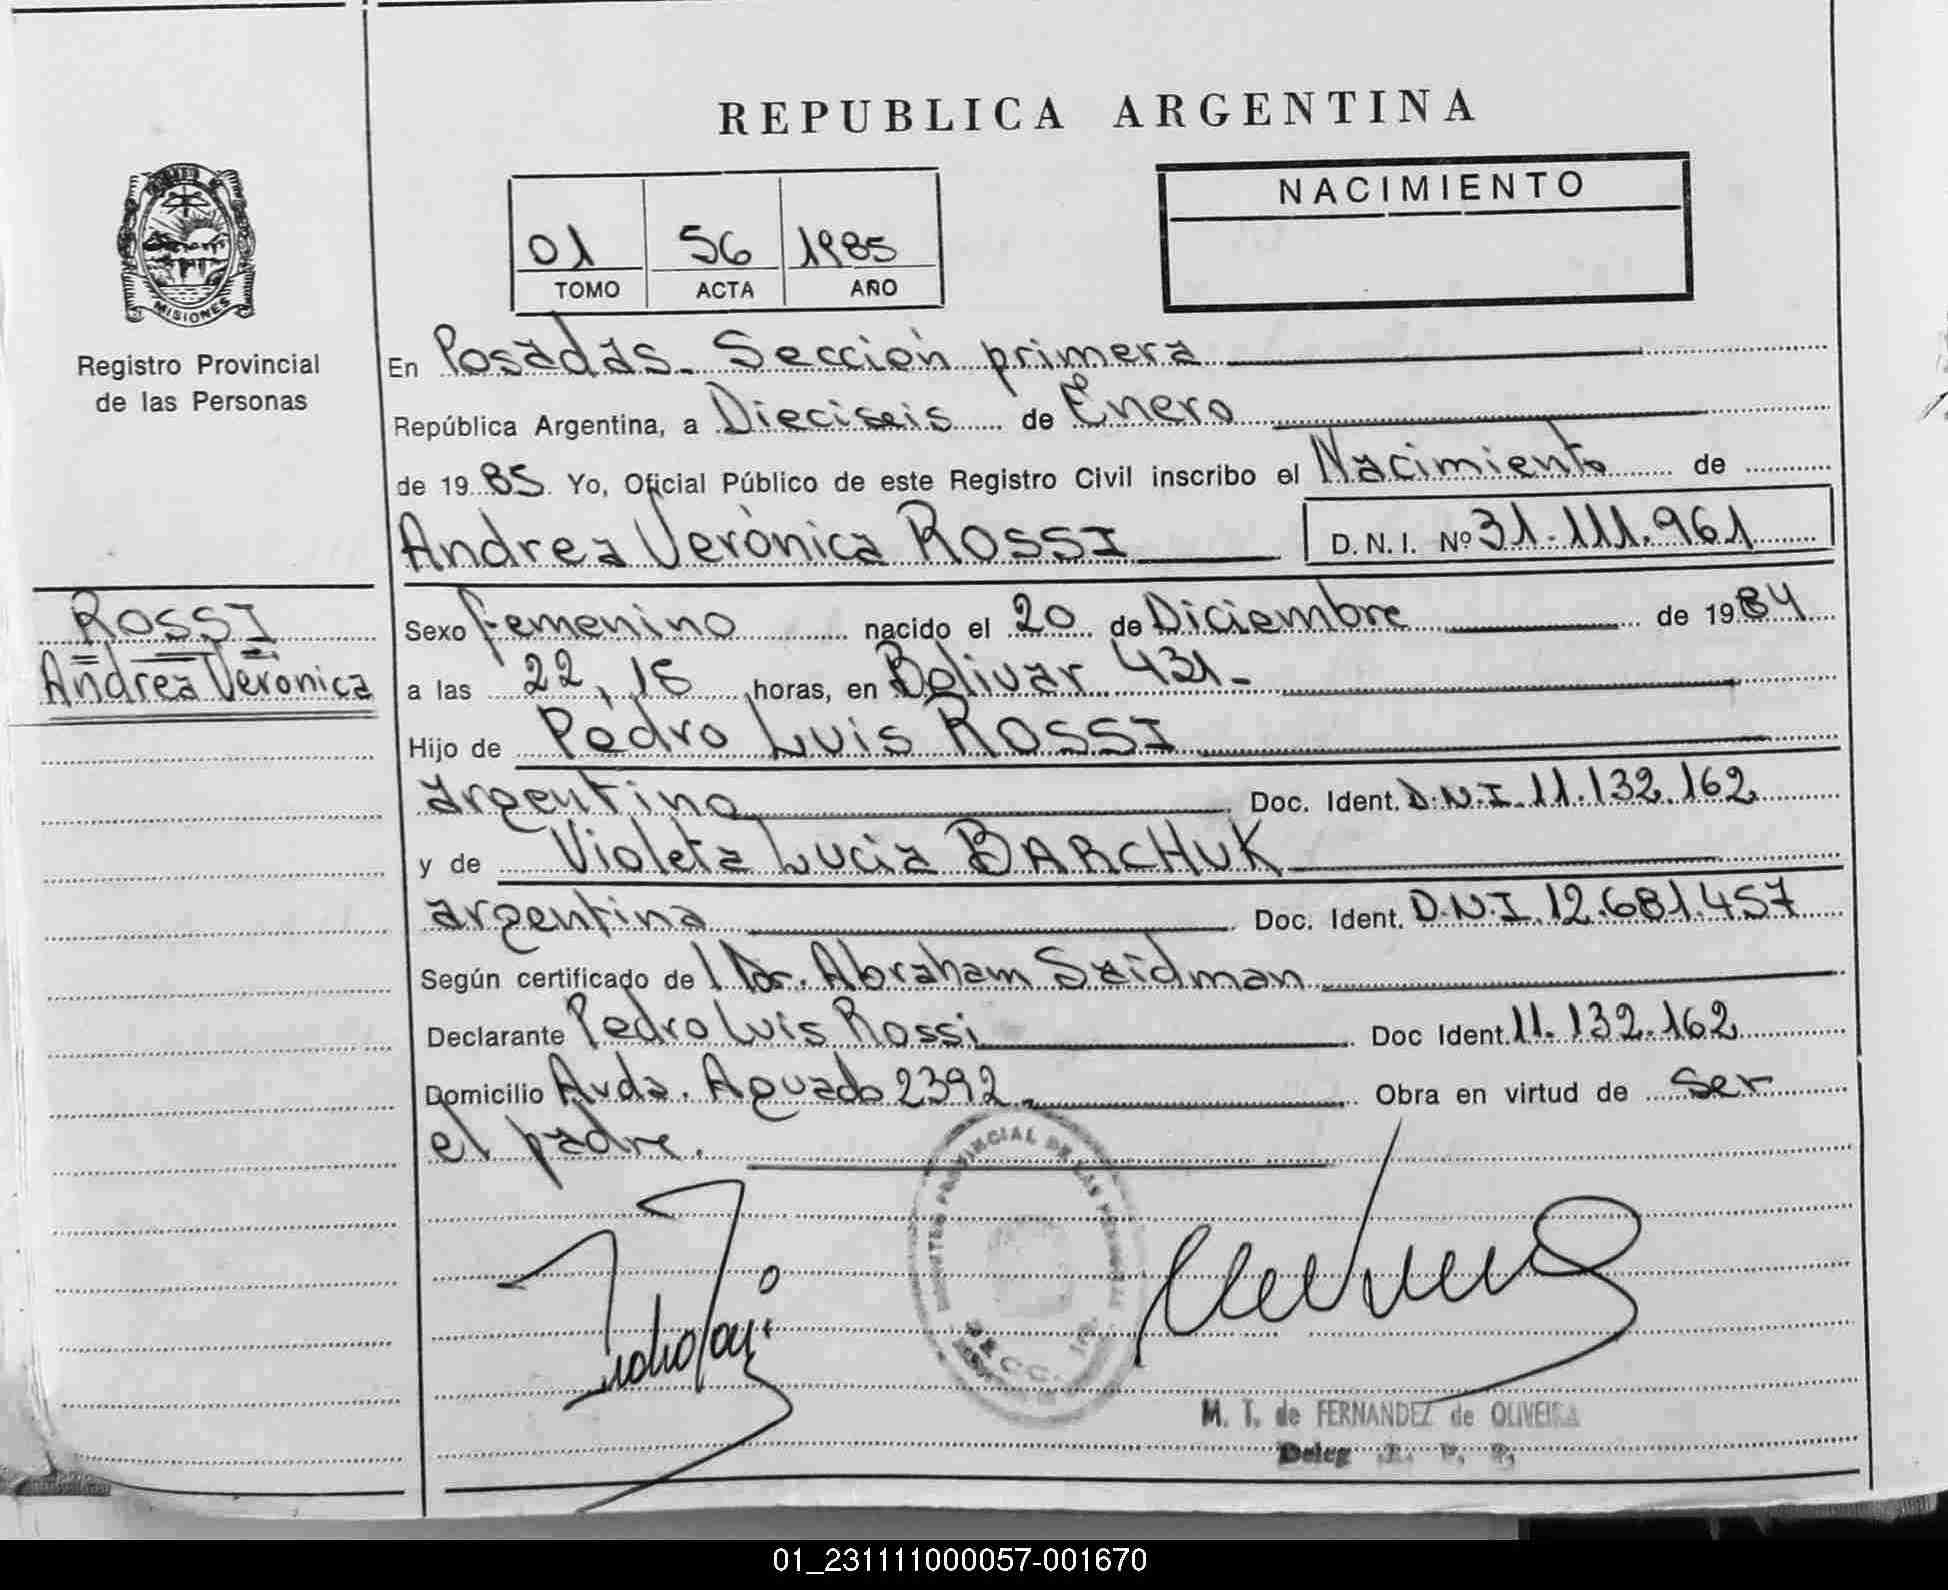 REPUBLICA ARGENTINA
MISIONES
Registro Provincial
de las Personas
01 56 1985
TOMO ACTA AÑO
NACIMIENTO
En Posadas - Sección primera
República Argentina, a Dieciseis de Enero
de 1985. Yo, Oficial Público de este Registro Civil inscribo el Nacimiento de
Andrea Verónica ROSSI D.N.I. Nº 31.111.961
ROSSI
Andrea Verónica
Sexo femenino nacido el 20 de Diciembre de 1984
a las 22,15 horas, en Bolivar 431-
Hijo de Pedro Luis ROSSI
argentino Doc. Ident. D.N.I. 11.132.162
y de Violeta Lucia BARCHUK
argentina Doc. Ident. D.N.I. 12.681.457
Según certificado de l Dr. Abraham Saidman
Declarante Pedro Luis Rossi Doc Ident. 11.132.162
Domicilio Avda. Aguado 2392- Obra en virtud de ser
el padre.
PROVINCIAL DE LAS
M. T. de FERNANDEZ de OLIVEIRA
Deleg R. P. P.
01_231111000057-001670